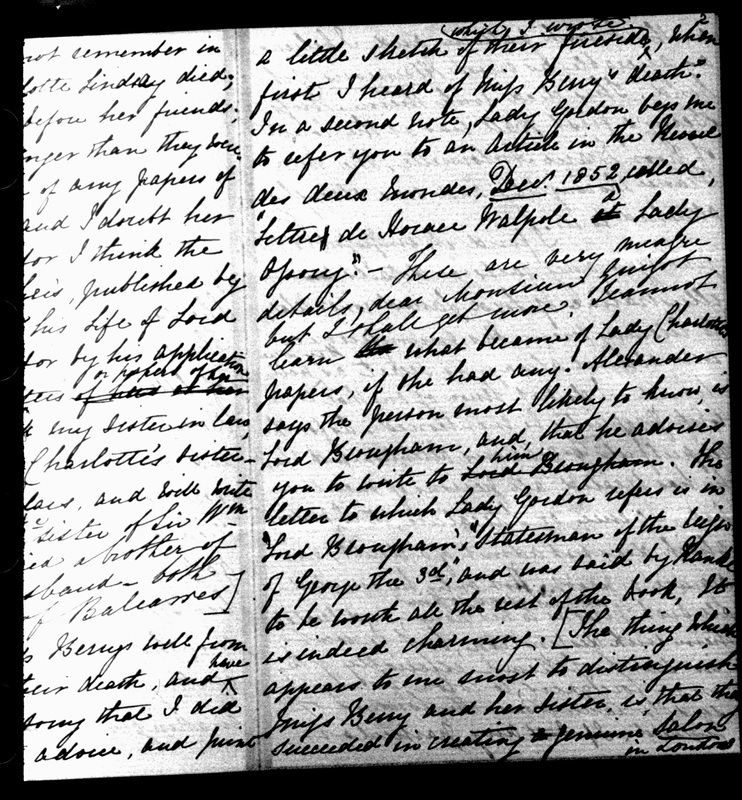 not remember in
lotte Lindsay died;
before her friends.
nger than they were
of any papers of
and I doubt her
for I think the
heirs, published by
his Life of Lord
for by his application
or papers of her
ters of letters at her
my sister in law,
Charlotte's sister-
laws, and will write
Sister of Sir Wm
ied a brother of
sband - both
of Balcarres]
s Berrys well from
have
their death, and
song that I did
advice, and print
whilst I wrote
a little sketch of their fireside, when
first I heard of Miss Berry's death."
In a second note, Lady Gordon begs me
to refer you to an article in the Revue
des deux Mondes, Decr. 1852, called,
"Lettres de Horace Walpole à Lady
Ossory." - These are very meagre
details, dear Monsieur Guizot
but I shall get more. I cannot
learn what became of Lady Charlotte's
papers, if she had any. Alexander
says the person most likely to know, is
Lord Brougham, and, that he advises
him
you to write to Lord Brougham. The
letter to which Lady Gordon refers is in
"Lord Brougham's, "Statesmen of the reign
of George the 3rd", and was said by
to be worth all the rest of the book, It
is indeed charming. [The thing which
appears to me most to distinguish
Miss Berry and her Sister, is, that they
succeeded in creating a genuine Salon
in London